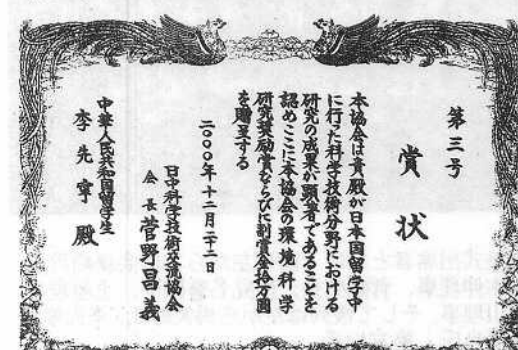 第三号
賞状
本協会は貴殿が日本国留学中
に行った科学技術分野における
研究の成果が顕著であることを
認めここに本協会の環境科学
研究奨励賞ならびに副賞金拾万円
を贈呈する
二〇〇〇年十二月二十一日
日中科学技術交流協会
会長 菅野昌義
中華人民共和国留学生
李先寧 殿